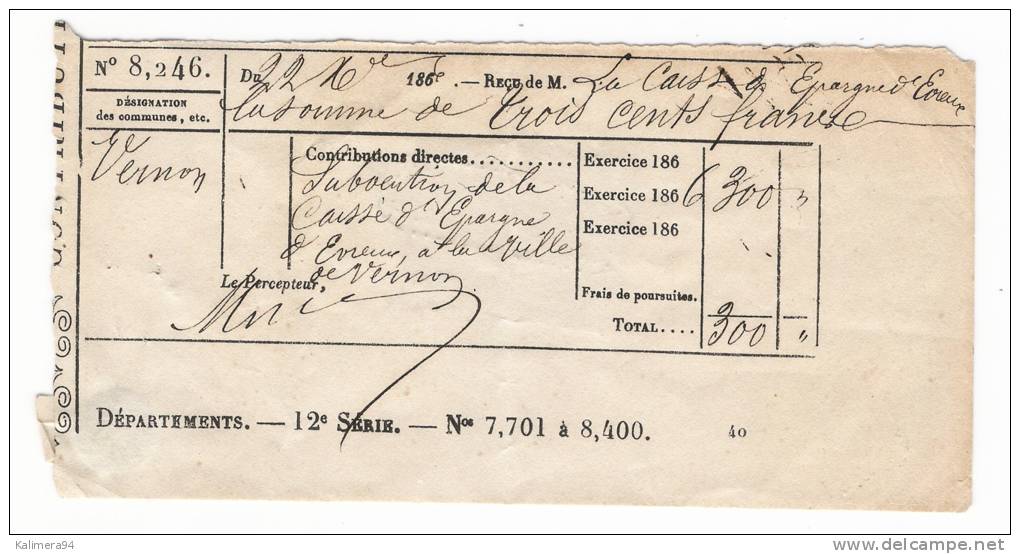 N° 8,246.
Du 22 Xbre 1866. — Reçu de M. La Caisse d'Epargne d'Evreux
DÉSIGNATION
des communes, etc.
la somme de trois cents francs
Vernon
Contributions directes........... Exercice 186
Subvention de la Exercice 1866 300 "
Caisse d'Epargne Exercice 186
d'Evreux, à la ville
de Vernon
Le Percepteur,
Frais de poursuites.
TOTAL.... 300 "
DÉPARTEMENTS. — 12e SÉRIE. — Nos 7,701 à 8,400. 40
Kalimera94
delcampe.net